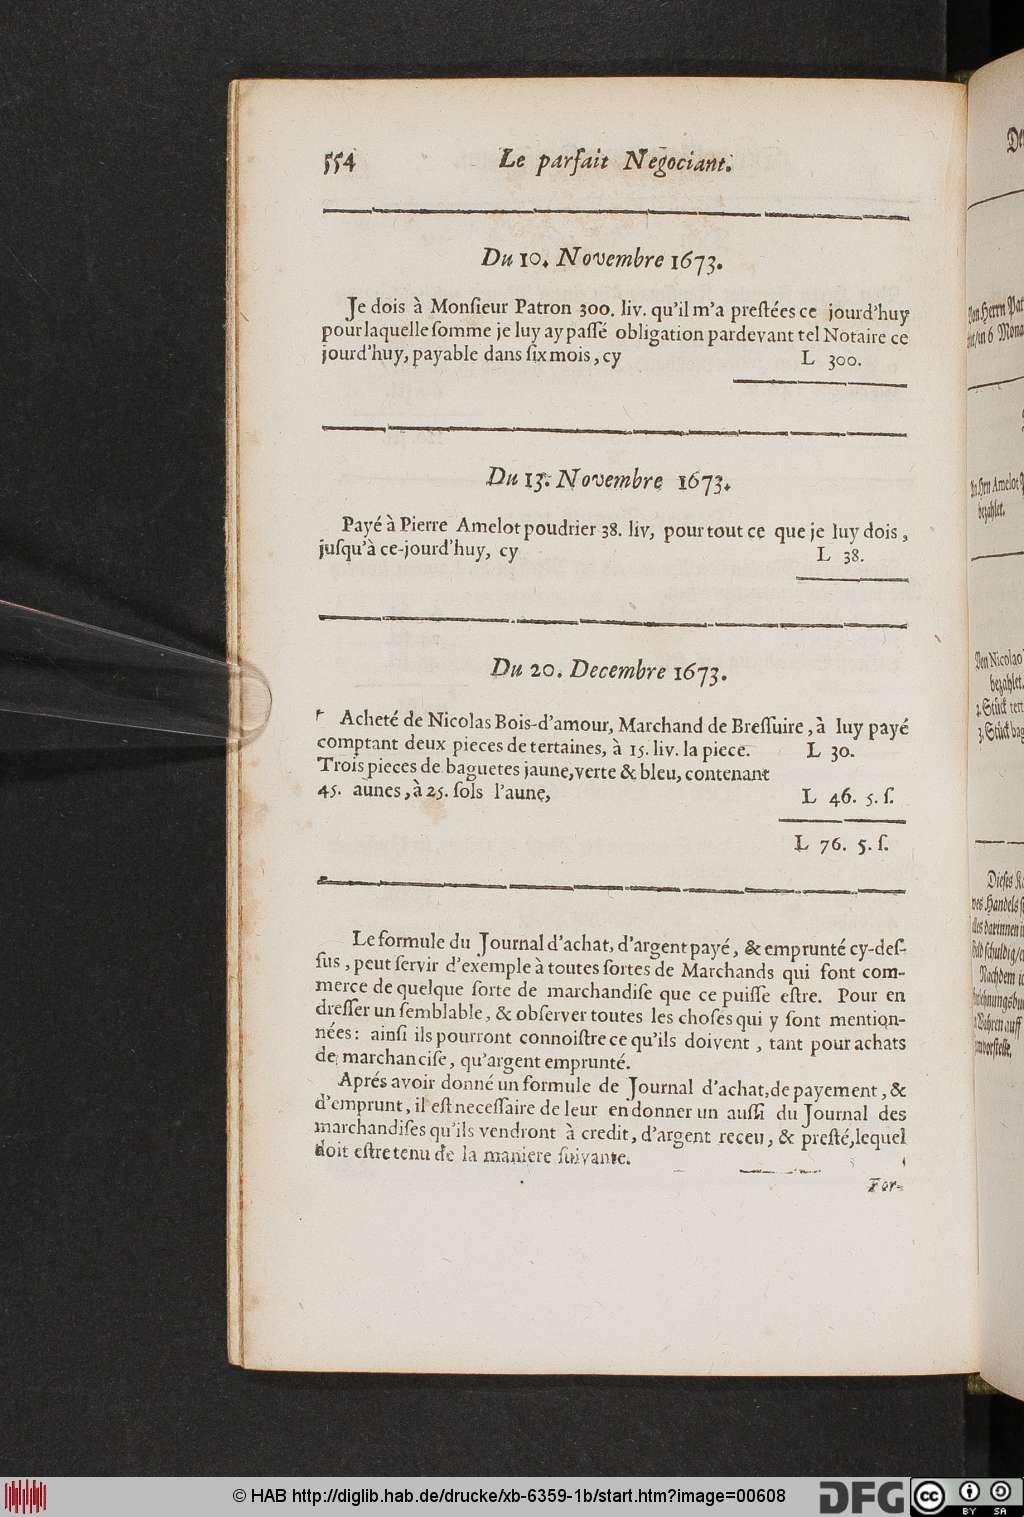 554 Le parfait Negociant.
Du 10. Novembre 1673.
Je dois à Monſieur Patron 300. liv. qu'il m'a preſtées ce jourd'huy
pour laquelle ſomme je luy ay paſſé obligation pardevant tel Notaire ce
jourd'huy, payable dans ſix mois, cy L 300.
Du 13. Novembre 1673.
Payé à Pierre Amelot poudrier 38. liv, pour tout ce que je luy dois,
juſqu'à ce-jourd'huy, cy L 38.
Du 20. Decembre 1673.
Acheté de Nicolas Bois-d'amour, Marchand de Breſſuire, à luy payé
comptant deux pieces de tertaines, à 15. liv. la piece. L 30.
Trois pieces de baguetes jaune, verte & bleu, contenant
45. aunes, à 25. ſols l'aune, L 46. 5. ſ.
L 76. 5. ſ.
Le formule du Journal d'achat, d'argent payé, & emprunté cy-deſ-
ſus, peut ſervir d'exemple à toutes ſortes de Marchands qui font com-
merce de quelque ſorte de marchandiſe que ce puiſſe eſtre. Pour en
dreſſer un ſemblable, & obſerver toutes les choſes qui y ſont mention-
nées: ainſi ils pourront connoiſtre ce qu'ils doivent, tant pour achats
de marchanciſe, qu'argent emprunté.
Aprés avoir donné un formule de Journal d'achat, de payement, &
d'emprunt, il eſt neceſſaire de leur en donner un auſſi du Journal des
marchandiſes qu'ils vendront à credit, d'argent receu, & preſté, lequel
doit eſtre tenu de la maniere ſuivante.
For-
Von Herrn
in 6
Amelot
bezahlet.
Von Nicolao
bezahlet.
2. Stück
3. Stück
Dieſes
Handels
ſchuldig/
Nachdem
Wahren auff
© HAB http://diglib.hab.de/drucke/xb-6359-1b/start.htm?image=00608
DFG
cc
BY SA